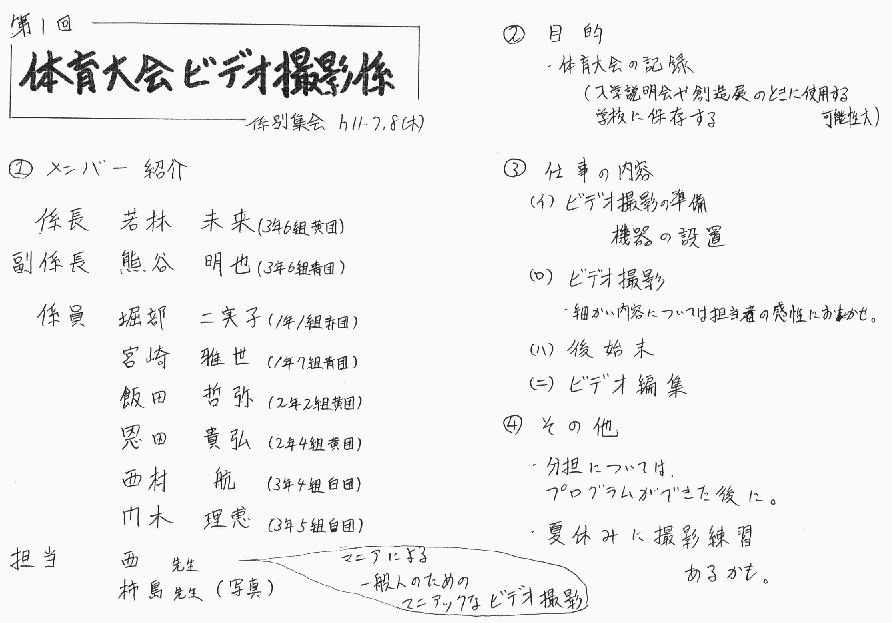 第1回
体育大会ビデオ撮影係
係別集会 h11.7.8(木)
① メンバー紹介
係長 若林 未来(3年6組黄団)
副係長 熊谷 明也(3年6組青団)
係員 堀部 二実子(1年1組赤団)
宮崎 雅世(1年7組青団)
飯田 哲弥(2年2組黄団)
恩田 貴弘(2年4組黄団)
西村 航(3年4組白団)
巾木 理恵(3年5組白団)
担当 西 先生
柿島先生(写真)
マニアによる
一般人のための
マニアックなビデオ撮影
② 目的
・体育大会の記録
(入学説明会や創造展のときに使用する
学校に保存する 可能性大)
③ 仕事の内容
(イ) ビデオ撮影の準備
機器の設置
(ロ) ビデオ撮影
・細かい内容については担当者の感性におまかせ。
(ハ) 後始末
(ニ) ビデオ編集
④ その他
・分担については、
プログラムができた後に。
・夏休みに撮影練習
あるかも。